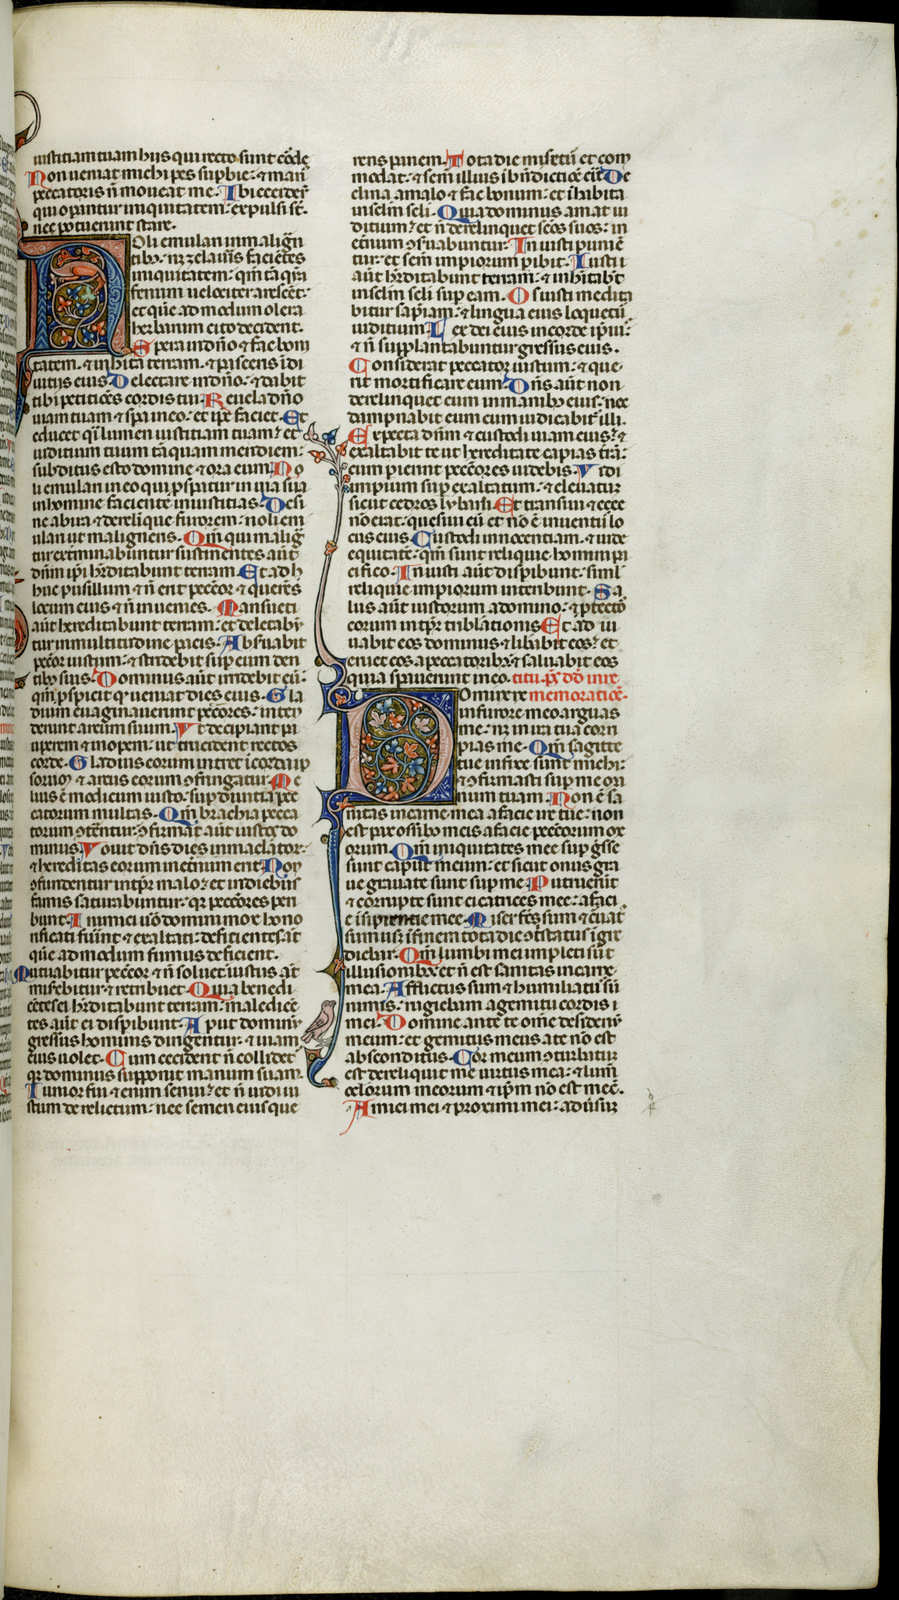 iusticiam tuam hiis qui recto sunt corde
Non veniat michi pes supbie: & man
peccatoris n̄ moveat me. Ibi ceciderūt
qui opantur iniquitatem: expulsi sūt
nec potuerunt stare.
Noli emulari in malign
tibȝ: nȝ zelaveris facientes
iniquitatem: qm̄ tāq̄m
fenum velociter arescēt:
et quē ad modum olera
herbarum cito decident.
Spera in dn̄o & fac boni
tatem: & inhita terram: & pasceris ī di
vitiis eius. Delectare in dn̄o: & dabit
tibi peticiōes cordis tui. Revela dn̄o
viam tuam & spa in eo: et ipē faciet. Et
educet q̄si lumen iusticiam tuam: et
iudicium tuum tāquam meridiem:
subditus esto domino & ora eum. No
li emulari in eo qui p̄spatur in via sua
in homine faciente iniusticias. Desi
ne ab ira & derelinque furorem: noli em
ulari ut maligneris. Qm̄ qui malig
tur exterminabuntur: sustinentes aūt
dn̄m ip̄i hr̄ditabunt terram. Et adh
huc pusillum & n̄ erit peccōr: & queres
locum eius & n̄ invenies. Mansueti
aūt hereditabunt terram: et delectabū
tur in multitudine pacis. Observabit
peccōr iustum: & stridebit sup eum den
tibȝ suis. Dominus aūt irridebit eū:
qm̄ p̄spicit q̄ veniat dies eius. Gla
dium evaginaverunt peccōres: inten
derunt arcum suum. Ut decipiant pau
perem & inopem: ut trucident rectos
corde. Gladius eorum intret ī corda ip
sorum: & arcus eorum ↄfringatur. Me
lius ē modicum iusto: sup divitias pec
catorum multas. Qm̄ brachia pecca
torum ↄterētur: ↄfirmat aūt iustos do
minus. Novit dn̄s dies immaclator:
& hereditas eorum in ecternum erit. Non
ↄfundentur in tpr̄e malo: et in diebus
famis saturabuntur: qr̄ peccōres peri
bunt. Inimici v̄o domini mox hono
rificati fūint & exaltati: deficientes at
que ad modum fumus deficient.
Mutuabitur peccōr & n̄ solvet: iustus at
miserebitur & retribuet. Quia benedi
centes ei hr̄ditabunt terram: maledicē
tes aūt ei dispibunt. Aput dominū
gressus hominis dirigentur: & viam
eius volet. Cum ceciderit n̄ collidet
qr̄ dominus supponit manum suam
Iunior fui & enim senui: et n̄ vidi iu
stum derelictum: nec semen eius que
rens panem. Tota die miseret̄ et com
modat: & sem̄ illius ī bn̄dictiōe erit. De
clina a malo & fac bonum: et īhabita
in sclm̄ scli. Quia dominus amat iu
dicium: et n̄ derelinquet scōs suos: in
etnum ↄservabuntur. Iniusti puniē
tur: et sem̄ impiorum p̄ibit. Iusti
aūt hr̄ditabunt terram: & inhitabt
in sclm̄ scli sup eam. Os iusti medita
bitur sap̄iam: & lingua eius loquetur
iudicium. Lex dei eius in corde ip̄ius:
& n̄ supplantabuntur gressus eius.
Considerat peccator iustum: & que
rit mortificare eum. Dn̄s aūt non
derelinquet eum in manibȝ eius: nec
dampnabit eum cum iudicabit̄ illi.
Expecta dn̄m & custodi viam eius: &
exaltabit te ut hereditate capias trā:
cum pierint peccōres videbis. Vidi
impium sup exaltatum: & elevatum
sicut cedros lybani. Et transivi & ecce
nō erat: quesivi eū et nō ē inventus lo
cus eius. Custodi innocentiam: & vide
equitatē: qm̄ sunt reliquie homini pa
cifico. Iniusti aūt dispibunt: simul
reliquie impiorum interibunt. Sa
lus aūt iustorum a domino: & ptector
eorum in tpr̄e tribulationis. Et ad iu
vabit eos dominus & libabit eos: et
eruet eos a peccatoribȝ & salvabit eos
quia speraverunt in eo. titu. ps. dd̄ in re
Domine ne memoratiōe.
in furore meo arguas
me: nȝ in ira tua corri
pias me. Qm̄ sagitte
tue infixe sunt michi:
& ↄfirmasti sup me ma
num tuam. Non ē sa
nitas in carne mea a facie ire tue: non
est pax ossibȝ meis a facie peccōrum me
orum. Qm̄ iniquitates mee sup ḡsse
sunt caput meum: et sicut onus gra
ve gravate sunt sup me. Putruerūt
& corrupte sunt cicatrices mee: a faci
e insipientie mee. Miser fc̄s sum & curvat
sum usqȝ ī finem: tota die ↄtristatus ī gre
diebar. Qm̄ lumbi mei impleti sūt
illusionibȝ: et n̄ est sanitas in carne
mea. Afflictus sum & humiliatus sū
nimis: rugiebam a gemitu cordis
mei. Domine ante te om̄e desiderū
meum: et gemitus meus a te nō est
absconditus. Cor meum ↄturbatur
est dereliquit me virtus mea: & lum̄
oculorum meorum & ip̄m nō est mec̄.
Amici mei & proximi mei: adūsum